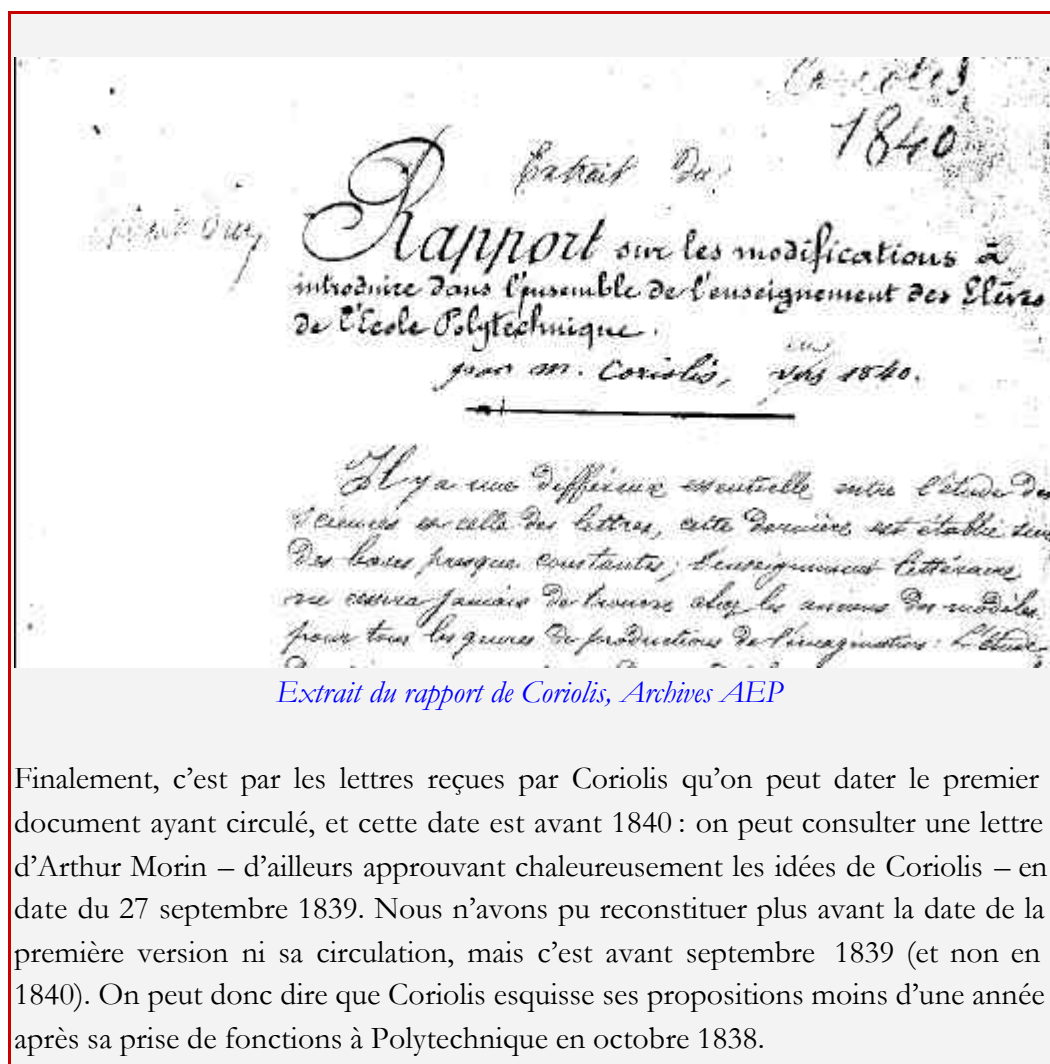 Coriolis
1840
Extrait du
Rapport sur les modifications à
introduire dans l'ensemble de l'enseignement des Elèves
de l'Ecole Polytechnique.
par M. Coriolis, vers 1840.
Il y a une différence essentielle entre l'étude des
sciences et celle des lettres, cette dernière est établie sur
des bases presque constantes; l'enseignement littéraire
ne cessera jamais de trouver chez les anciens des modèles
pour tous les genres de productions de l'imagination : L'étude
Extrait du rapport de Coriolis, Archives AEP
Finalement, c’est par les lettres reçues par Coriolis qu’on peut dater le premier
document ayant circulé, et cette date est avant 1840 : on peut consulter une lettre
d’Arthur Morin – d’ailleurs approuvant chaleureusement les idées de Coriolis – en
date du 27 septembre 1839. Nous n’avons pu reconstituer plus avant la date de la
première version ni sa circulation, mais c’est avant septembre 1839 (et non en
1840). On peut donc dire que Coriolis esquisse ses propositions moins d’une année
après sa prise de fonctions à Polytechnique en octobre 1838.